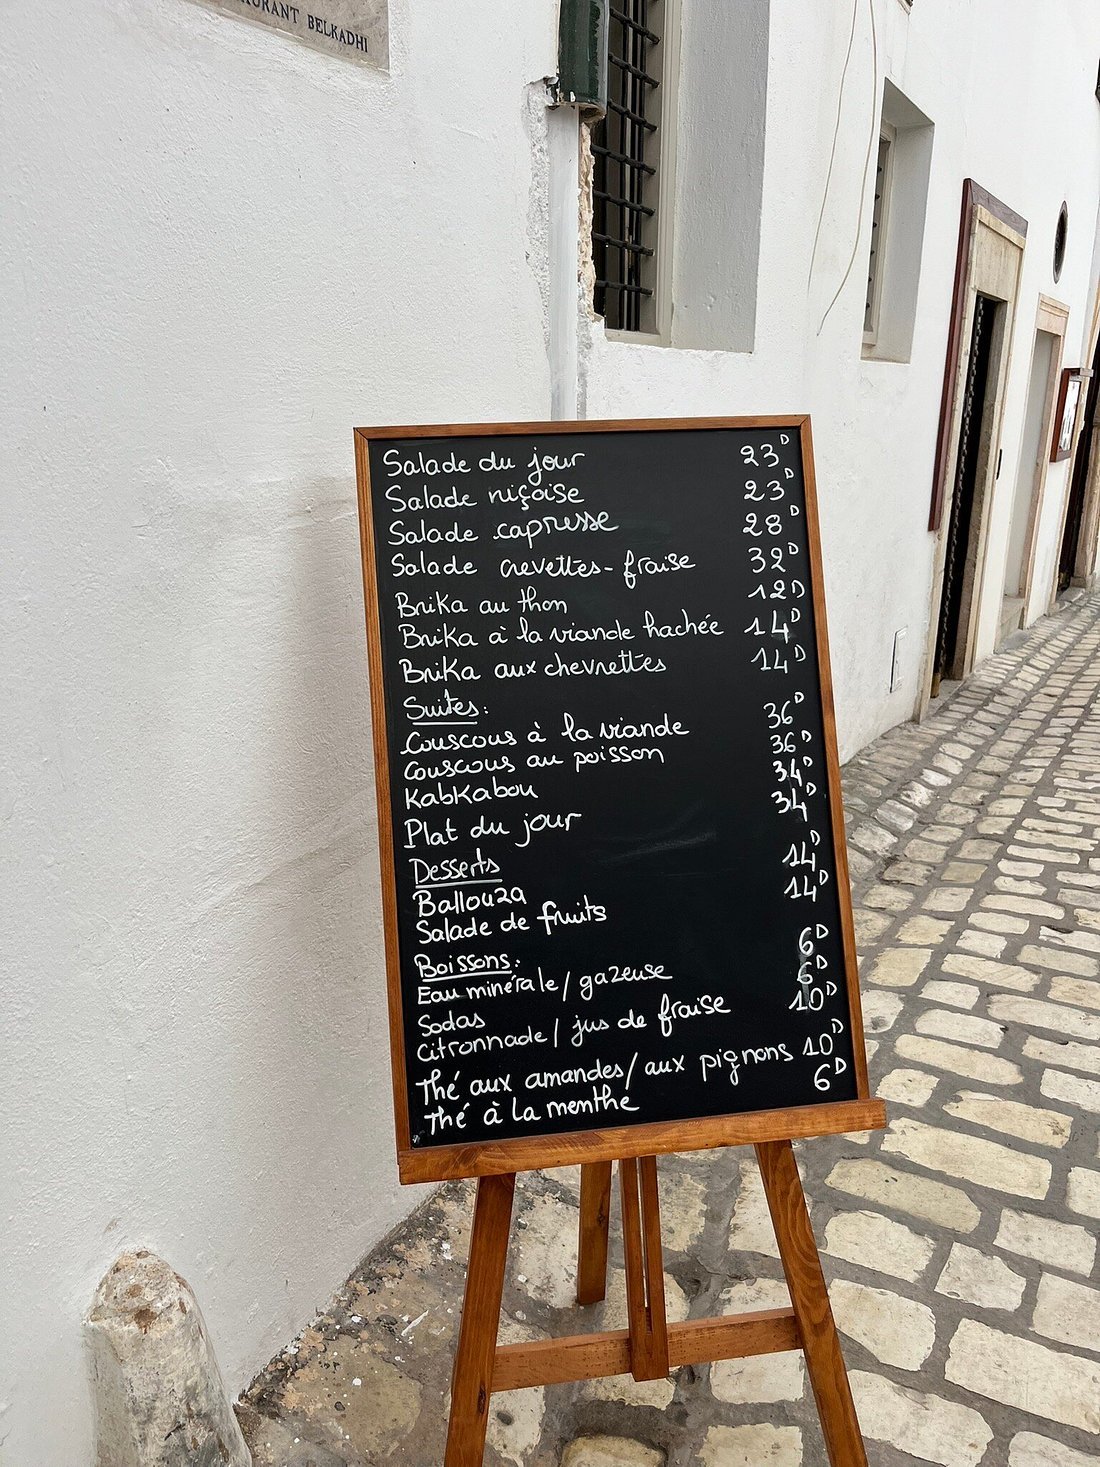 RANT BELKADHI
Salade du jour 23D
Salade niçoise 23D
Salade capresse 28D
Salade crevettes-fraise 32D
Brika au thon 12D
Brika à la viande hachée 14D
Brika aux chevrettes 14D
Suites:
Couscous à la viande 36D
Couscous au poisson 36D
Kabkabou 34D
Plat du jour 34D
Desserts
Ballouza 14D
Salade de fruits 14D
Boissons:
Eau minérale/gazeuse 6D
Sodas 6D
Citronnade/jus de fraise 10D
Thé aux amandes/aux pignons 10D
Thé à la menthe 6D